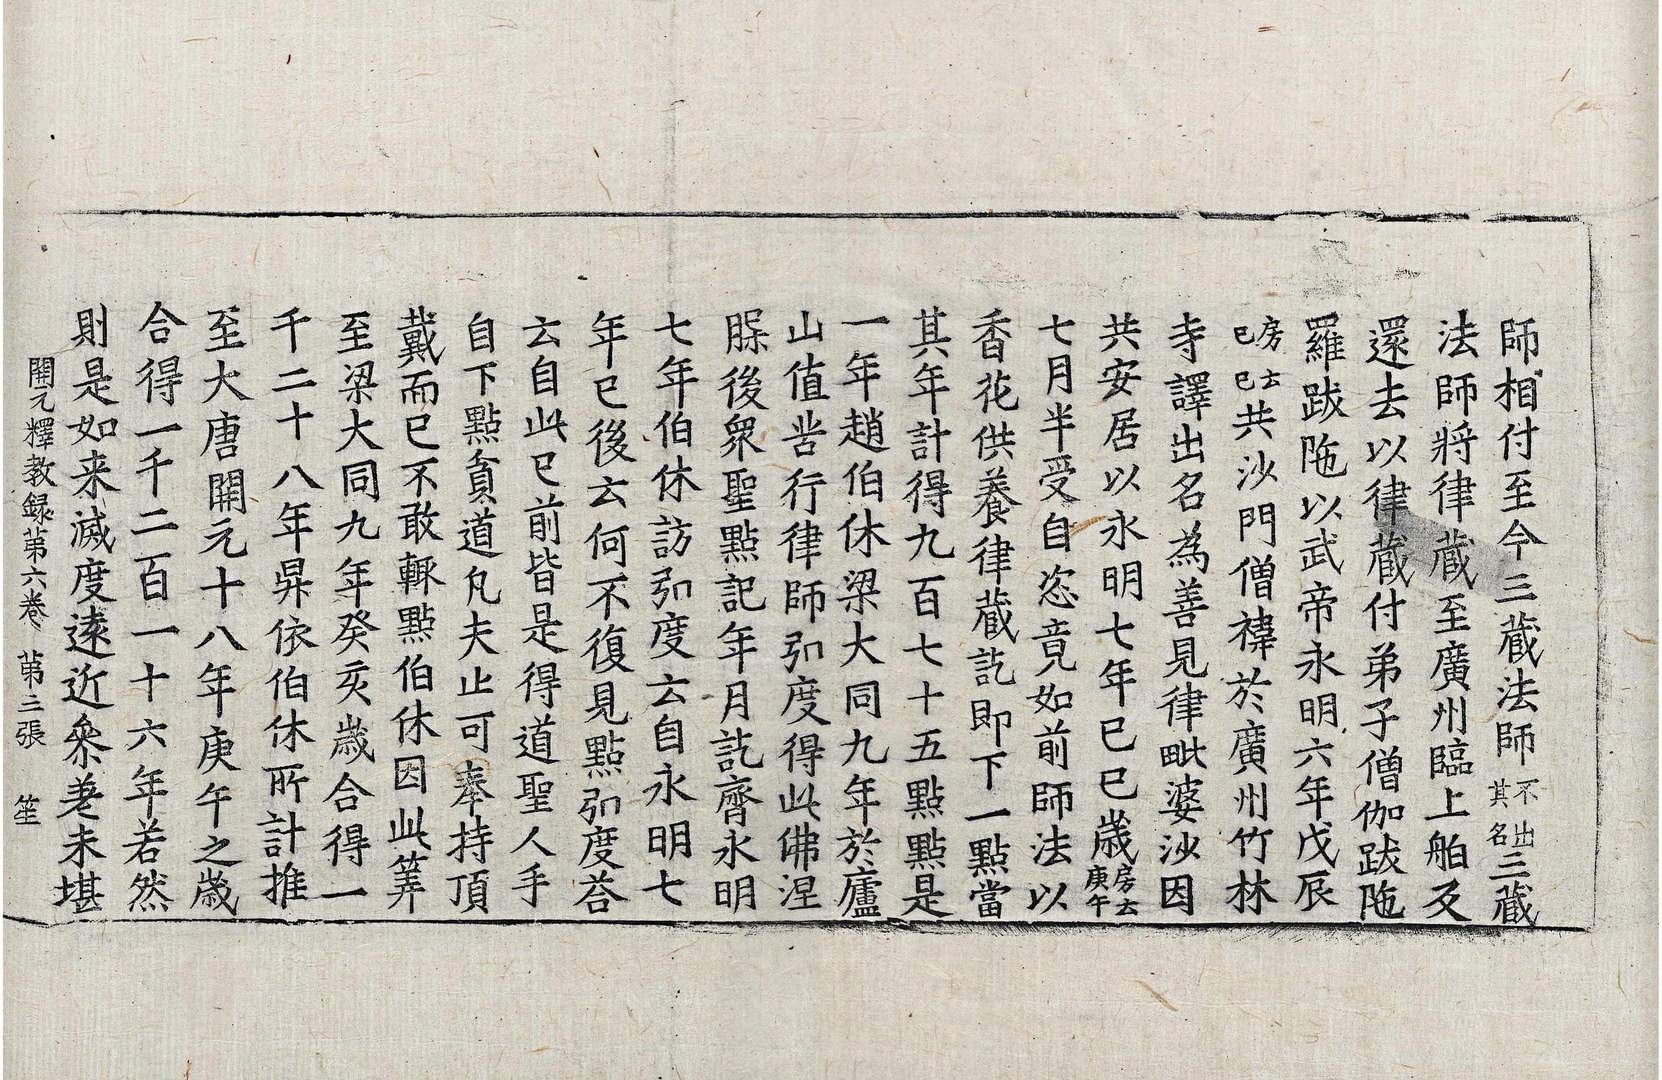 師相付至今三蔵法師不出其名三蔵
法師將律蔵至廣州臨上舶及
還去以律蔵付弟子僧伽跋陁
羅跋陁以武帝永明六年戊辰
房云己巳共沙門僧禕於廣州竹林
寺譯出名為善見律毗婆沙因
共安居以永明七年己巳歲房云庚午
七月半受自恣竟如前師法以
香花供養律蔵訖即下一點當
其年計得九百七十五點點是
一年趙伯休梁大同九年於廬
山值苦行律師弘度得此佛涅
腺後衆聖點記年月訖齊永明
七年伯休訪弘度云自永明七
年已後云何不復見點弘度荅
云自此已前皆是得道聖人手
自下點貧道凡夫止可奉持頂
戴而已不敢輙點伯休因此筭
至梁大同九年癸亥歲合得一
千二十八年昇依伯休所計推
至大唐開元十八年庚午之歲
合得一千二百一十六年若然
則是如来滅度遠近叅差未堪
開元釋教録第六卷 第三張 笙